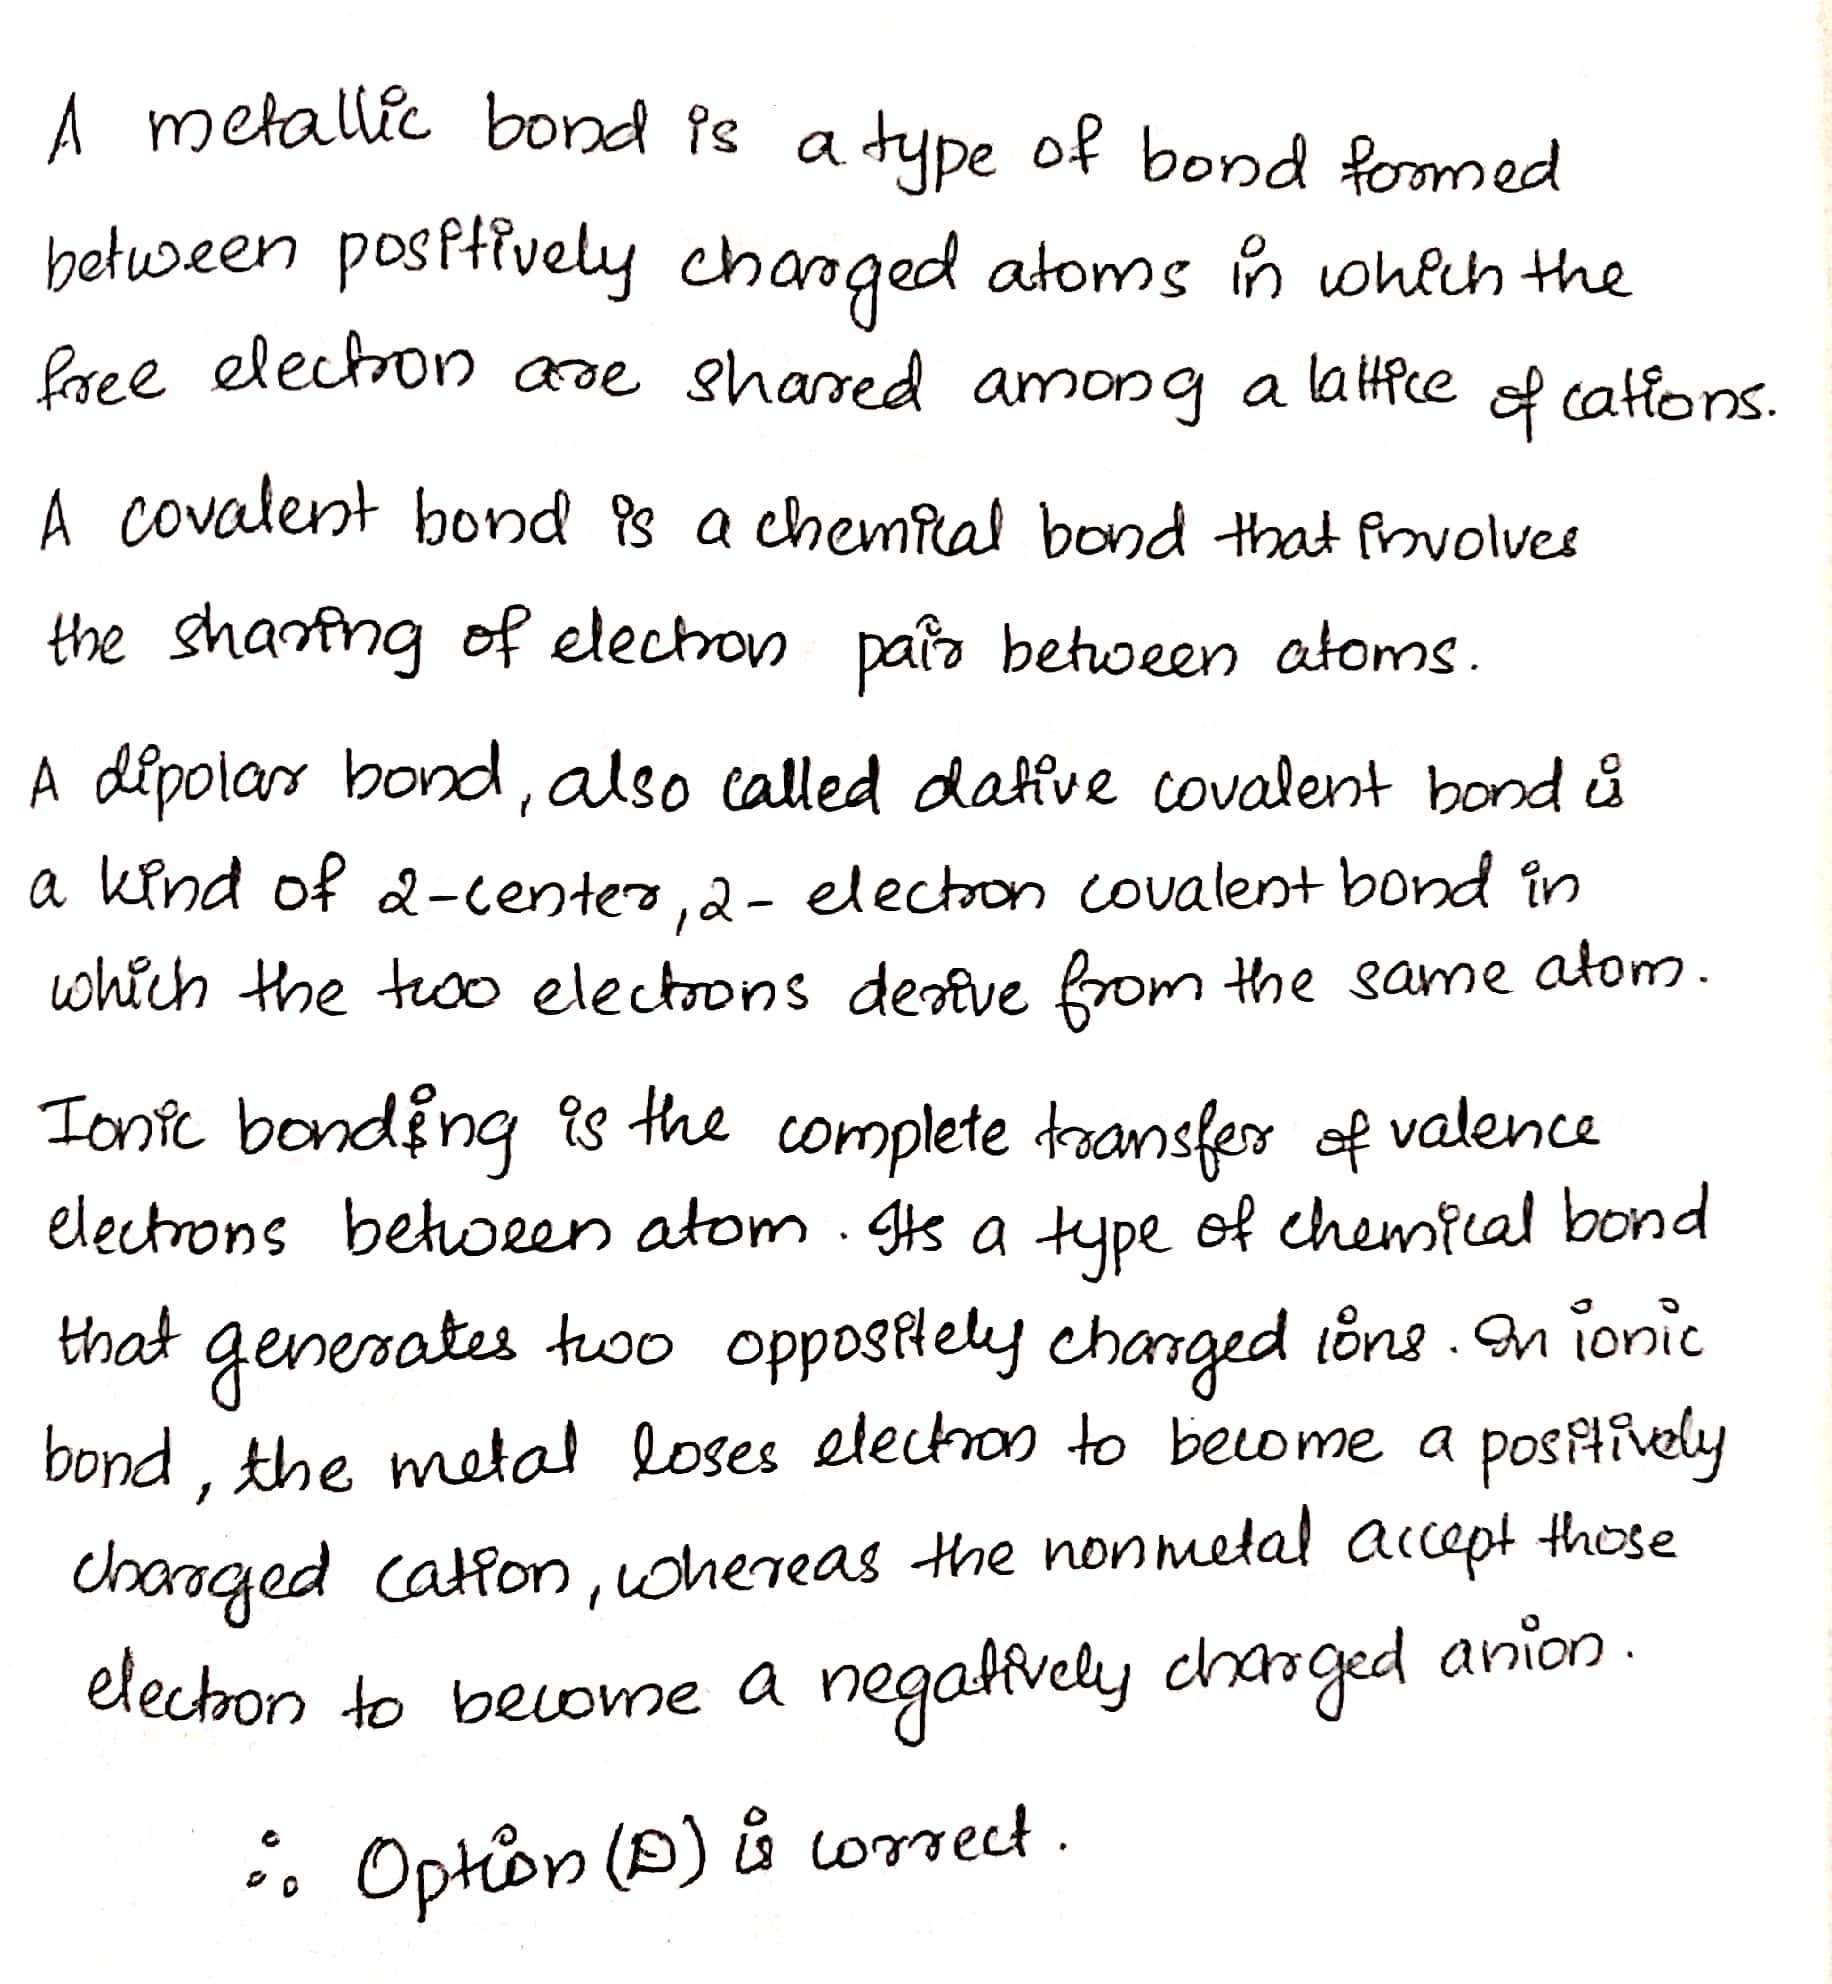 A metallic bond is a type of bond formed
between positively charged atoms in which the
free electron are shared among a lattice of cations.
A covalent bond is a chemical bond that involves
the sharing of electron pair between atoms.
A dipolar bond, also called dative covalent bond is
a kind of 2-center, 2- electron covalent bond in
which the two electrons derive from the same atom.
Ionic bonding is the complete transfer of valence
electrons between atom. Its a type of chemical bond
that generates two oppositely charged ions. In ionic
bond, the metal loses electron to become a positively
charged cation, whereas the nonmetal accept those
electron to become a negatively charged anion.
∴ Option (D) is correct.